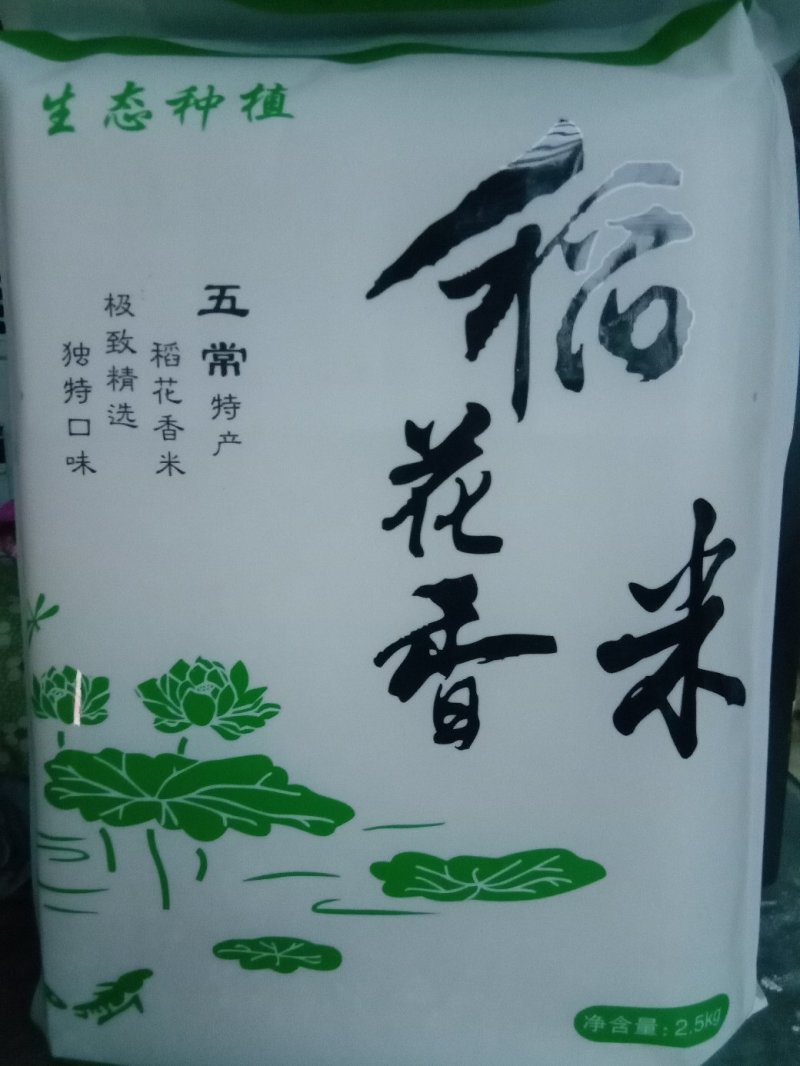 生态种植
稻花香米
五常特产
稻花香米
极致精选
独特口味
净含量：2.5kg